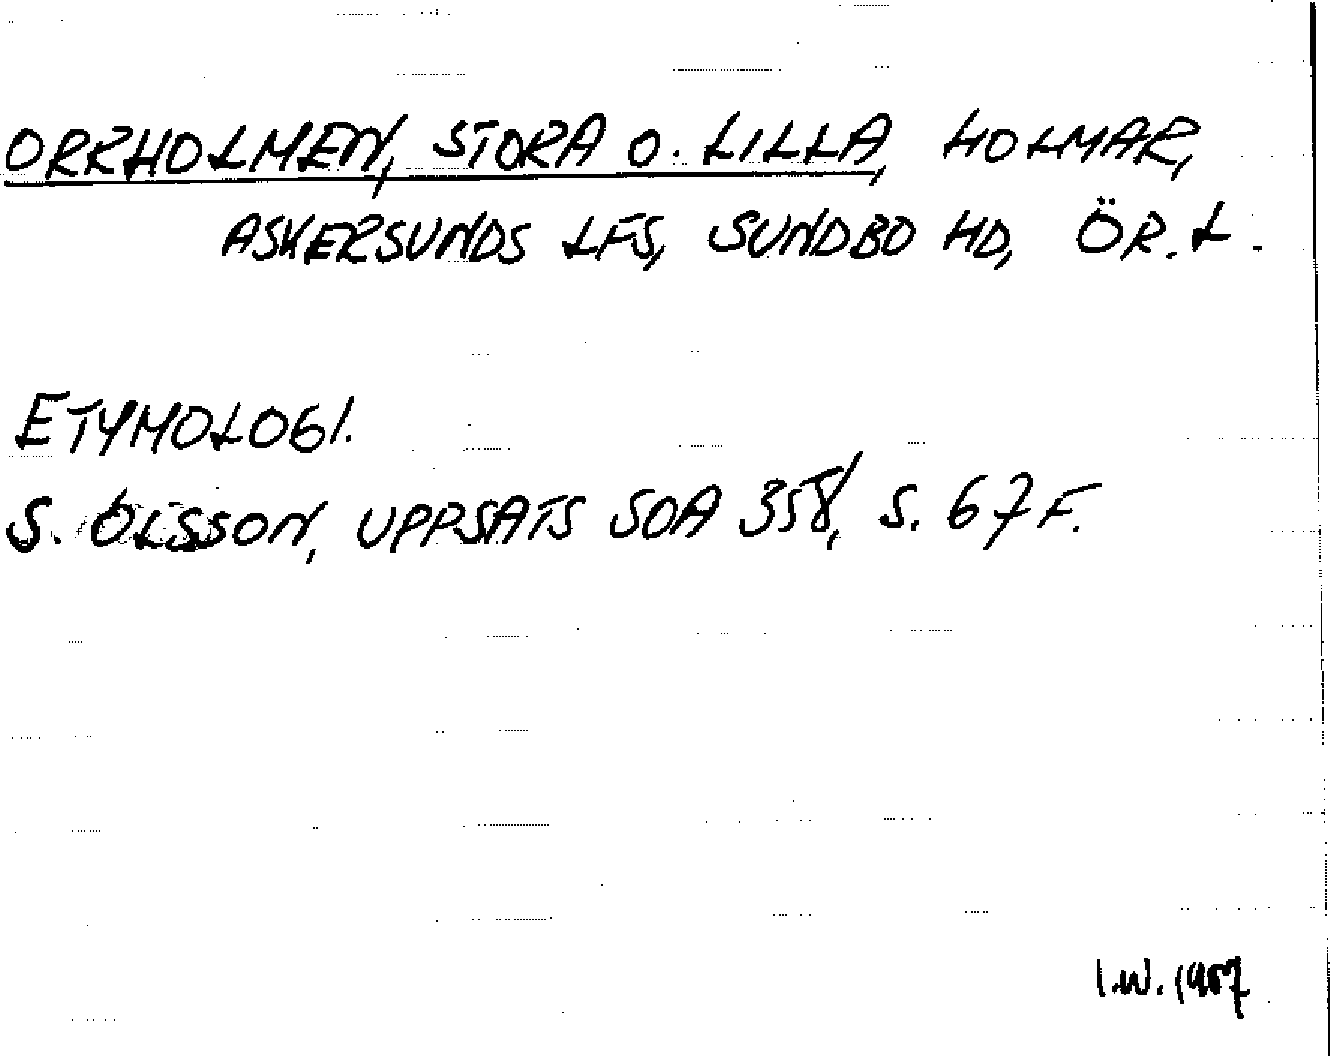 ORRHOLMEN, STORA O. LILLA, HOLMAR,
ASKERSUNDS LFS, SUNDBO HD, ÖR. L.
ETYMOLOGI.
S. OLSSON, UPPSATS SOA 358, S. 67 F.
I.W.